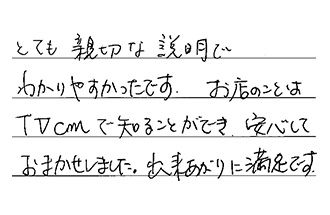 とても 親切な 説明で
わかりやすかったです. お店のことは
TVcmで知ることができ. 安心して
おまかせしました。出来あがりに満足です.